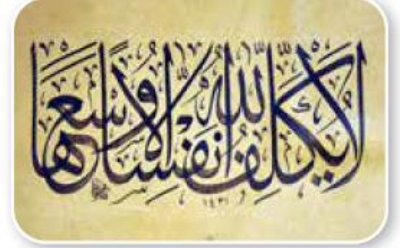 لَا يُكَلِّفُ اللَّهُ نَفْسًا إِلَّا وُسْعَهَا
١٤٣١